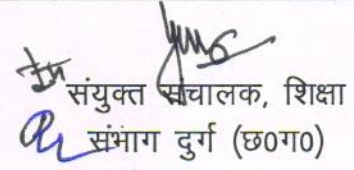 संयुक्त संचालक, शिक्षा
संभाग दुर्ग (छ०ग०)